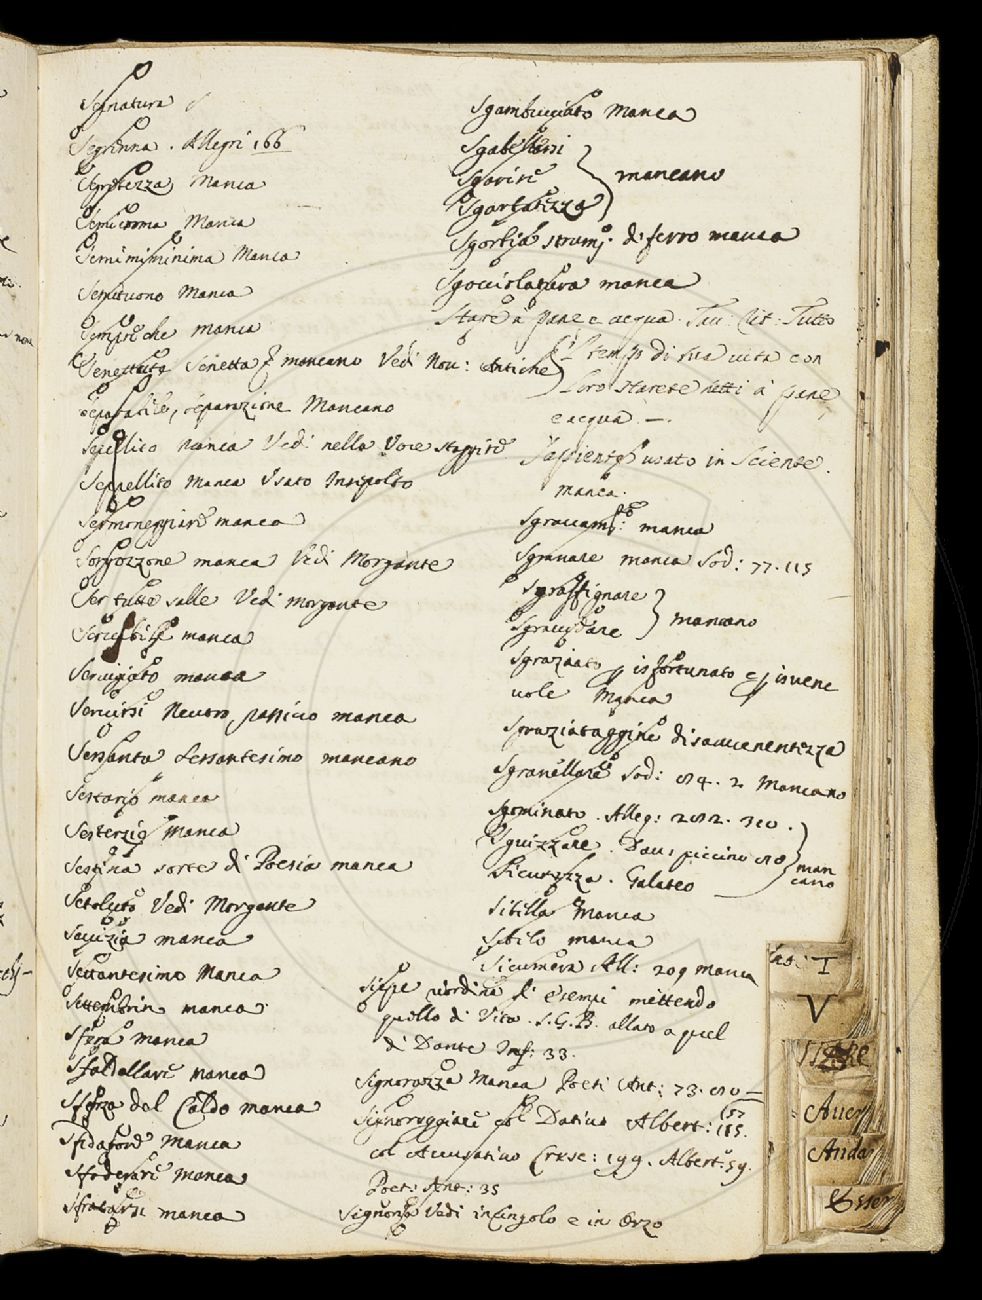 Segrenna . Allegri 166
Segretezza Manca
Semicroma Manca
Semiminima Manca
Semituono Manca
Sempreche manca
Senettuta Senetta mancano Vedi Nov: Antiche
Separabile, separazione Mancano
Sepellito manca Vedi nella Voce
Seppellito manca Usato
Sermoneggiare manca
Sorgozzone manca Vedi Morgante
Sertutte salle Vedi morgante
manca
Servigiato manca
Servirsi Neutro passivo manca
Sessanta Sessantesimo mancano
Sestario manca
Sesterzio Manca
Sestina sorte di Poesia manca
Vedi Morgante
manca
Settantesimo Manca
Settembrin manca
Sfera manca
Sfaldellare manca
Sferza del Caldo manca
Manca
Sfoderare manca
Sfratarsi manca
Sgambucciato Manca
mancano
di ferro manca
Sgocciolatura manca
Stare a pane e acqua . Tav: Rit: Tutto
l temp di sua vita con
loro starete tutti à pane,
e acqua .—.
Sapiente usato in Sciente .
manca .
manca
Sgranare manca Sod: 77. 115
Sgraffignare
mancano
Sgraziato isfortunato e isvene
vole Manca
Sgraziataggine disavvenentezza
Sgranellare Sod: Mancano
Sgominato . Alleg: 310 .
Sguizzare . Dav:
Sicurezza . Galateo
man
cano
Sibilla Manca
Sibilo manca
Sicumera All: 209 manca
Siepe riordina li esempi mettendo
quello di Vita . S.G.B. allato a quel
di Dante Inf: 33.
Signorazza Manca Poeti Ant: 73.
Signoreggiare col Dativo Albert: 115.
157
col Accusativo Cresc: 199. Albert: 59.
Poet: Ant: 35
Vedi in Cingolo e in Orzo
I
V
Aver
Anda
Esser